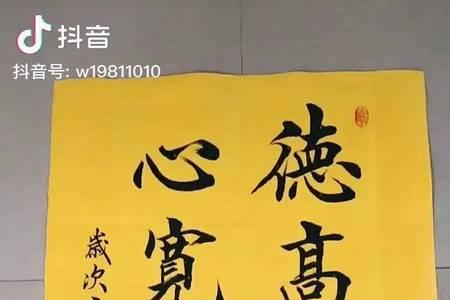 抖音
抖音号: w19811010
德高
心寬
歲次